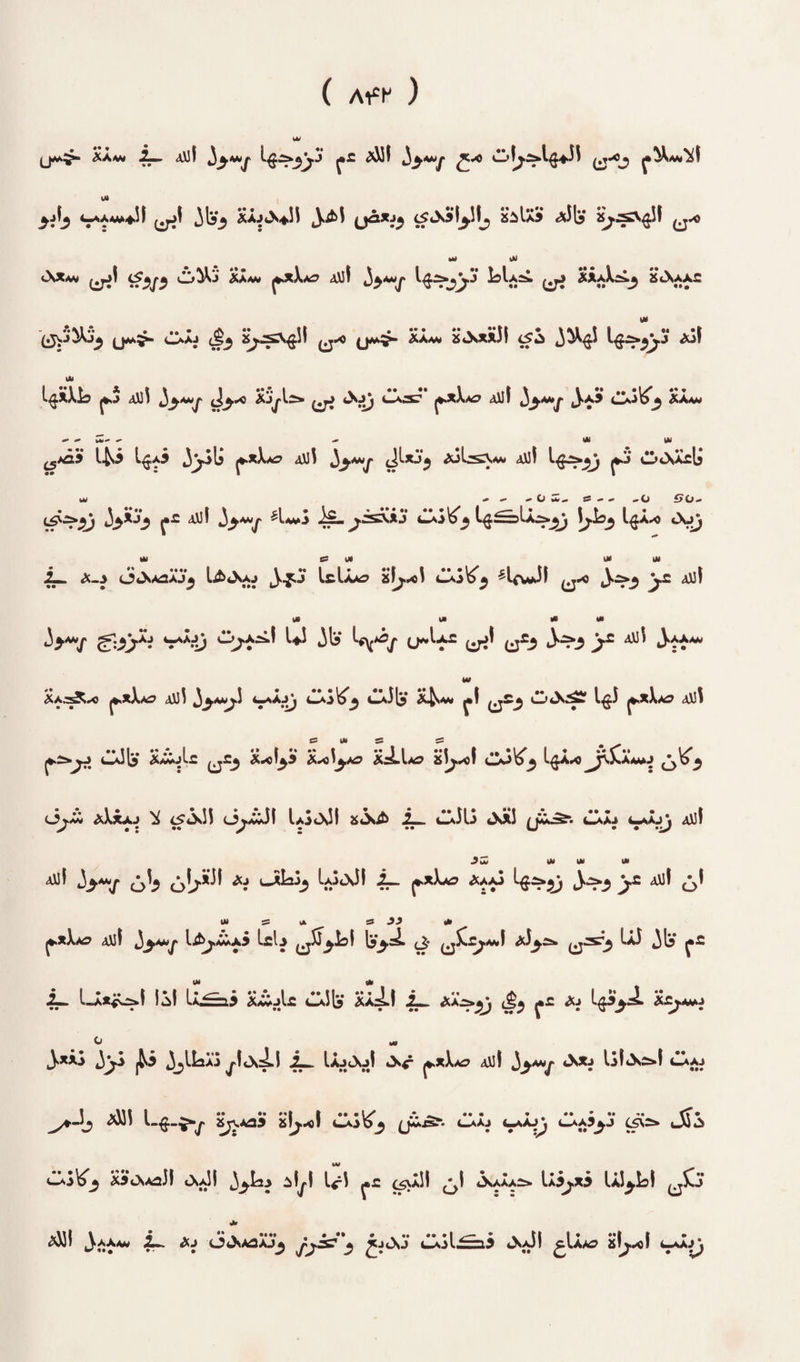 ( ٨۴٢ )
الاسلام ومن المهاجرات مع رسول الله عم تزوّجها رسول الله في سنة خمس
من الهجرة قاله قتادة والواقدي وبعض اهل المدينة وقال ابن المسيّب وابو
عبيدة وخليفة بن خياط تزوّجها رسول الله صلعم سنة ثلاث وروي ابن سعد
انه تزوّجها لهلال ذي القعدة سنة خمس من الهجرة وهي بنت خمس وثلاثين
سنة وكانت قبل رسول الله صلعم تحت زيد بن حارثة مولي رسول الله ثم طلّقها
فاعتدّت ثم زوّجها الله سبحانه وتعالي رسول الله صلعم فانزل فيها فَلَمَّا قَضَي
زَيْدٌ مِنْهَا وَطَراً زَوَّجْنَاكَهَا وكانت تفتخر علي نساء رسول الله عم وتقول زوّجني
الله عزّ وجلّ من السماء وكانت امرأة صناعا تعمل بيدها وتتصدّق بـه في
سبيل الله عزّ وجلّ وعن ابن عباس رضيها قال لمّا اخبرت زينب بتزويج رسول
الله صلعم لها سجدت وعن ام سلمة قالت وكانت زينب لرسول الله صلعم معجبة
وكان يستكثر منها وكانت امرأة صالحة صوّامة قوّامة وعن عايشة قالت يرحم
الله زينب بنت جحش لقد نالت في هذه الدنيا الشرف الذي لا يبلغه شرف
ان الله عزّ وجلّ زوّجها نبيّه صلعم في الدنيا ونطق به القرآن وان رسول الله
عم قال لنا ونحن حوله اسرعكن بي لحوقا اطولكنّ باعا فبشّرها رسول الله صلعم
بسرعة لحوقها به عم وهي زوجته في الجنّة قالت عايشة فكنّا اذا اجتمعنا في
بيت احدانا بعد رسول الله صلعم نمدّ ايدينا في الجدار نتطاول فلم نزل نفعل
ذلك حتي توفيت زينب بنت جحش وكانت امرأة قصيرة رحمهـا الله ولـم
تكن اطولنا فعرفنا حينيذ ان النبي عم انّما اراد بطول اليد الصدقة وكانت
زينب امرأة صناع اليد فكانت تدبغ وتخرز وتتصدّق به في سبيل الله